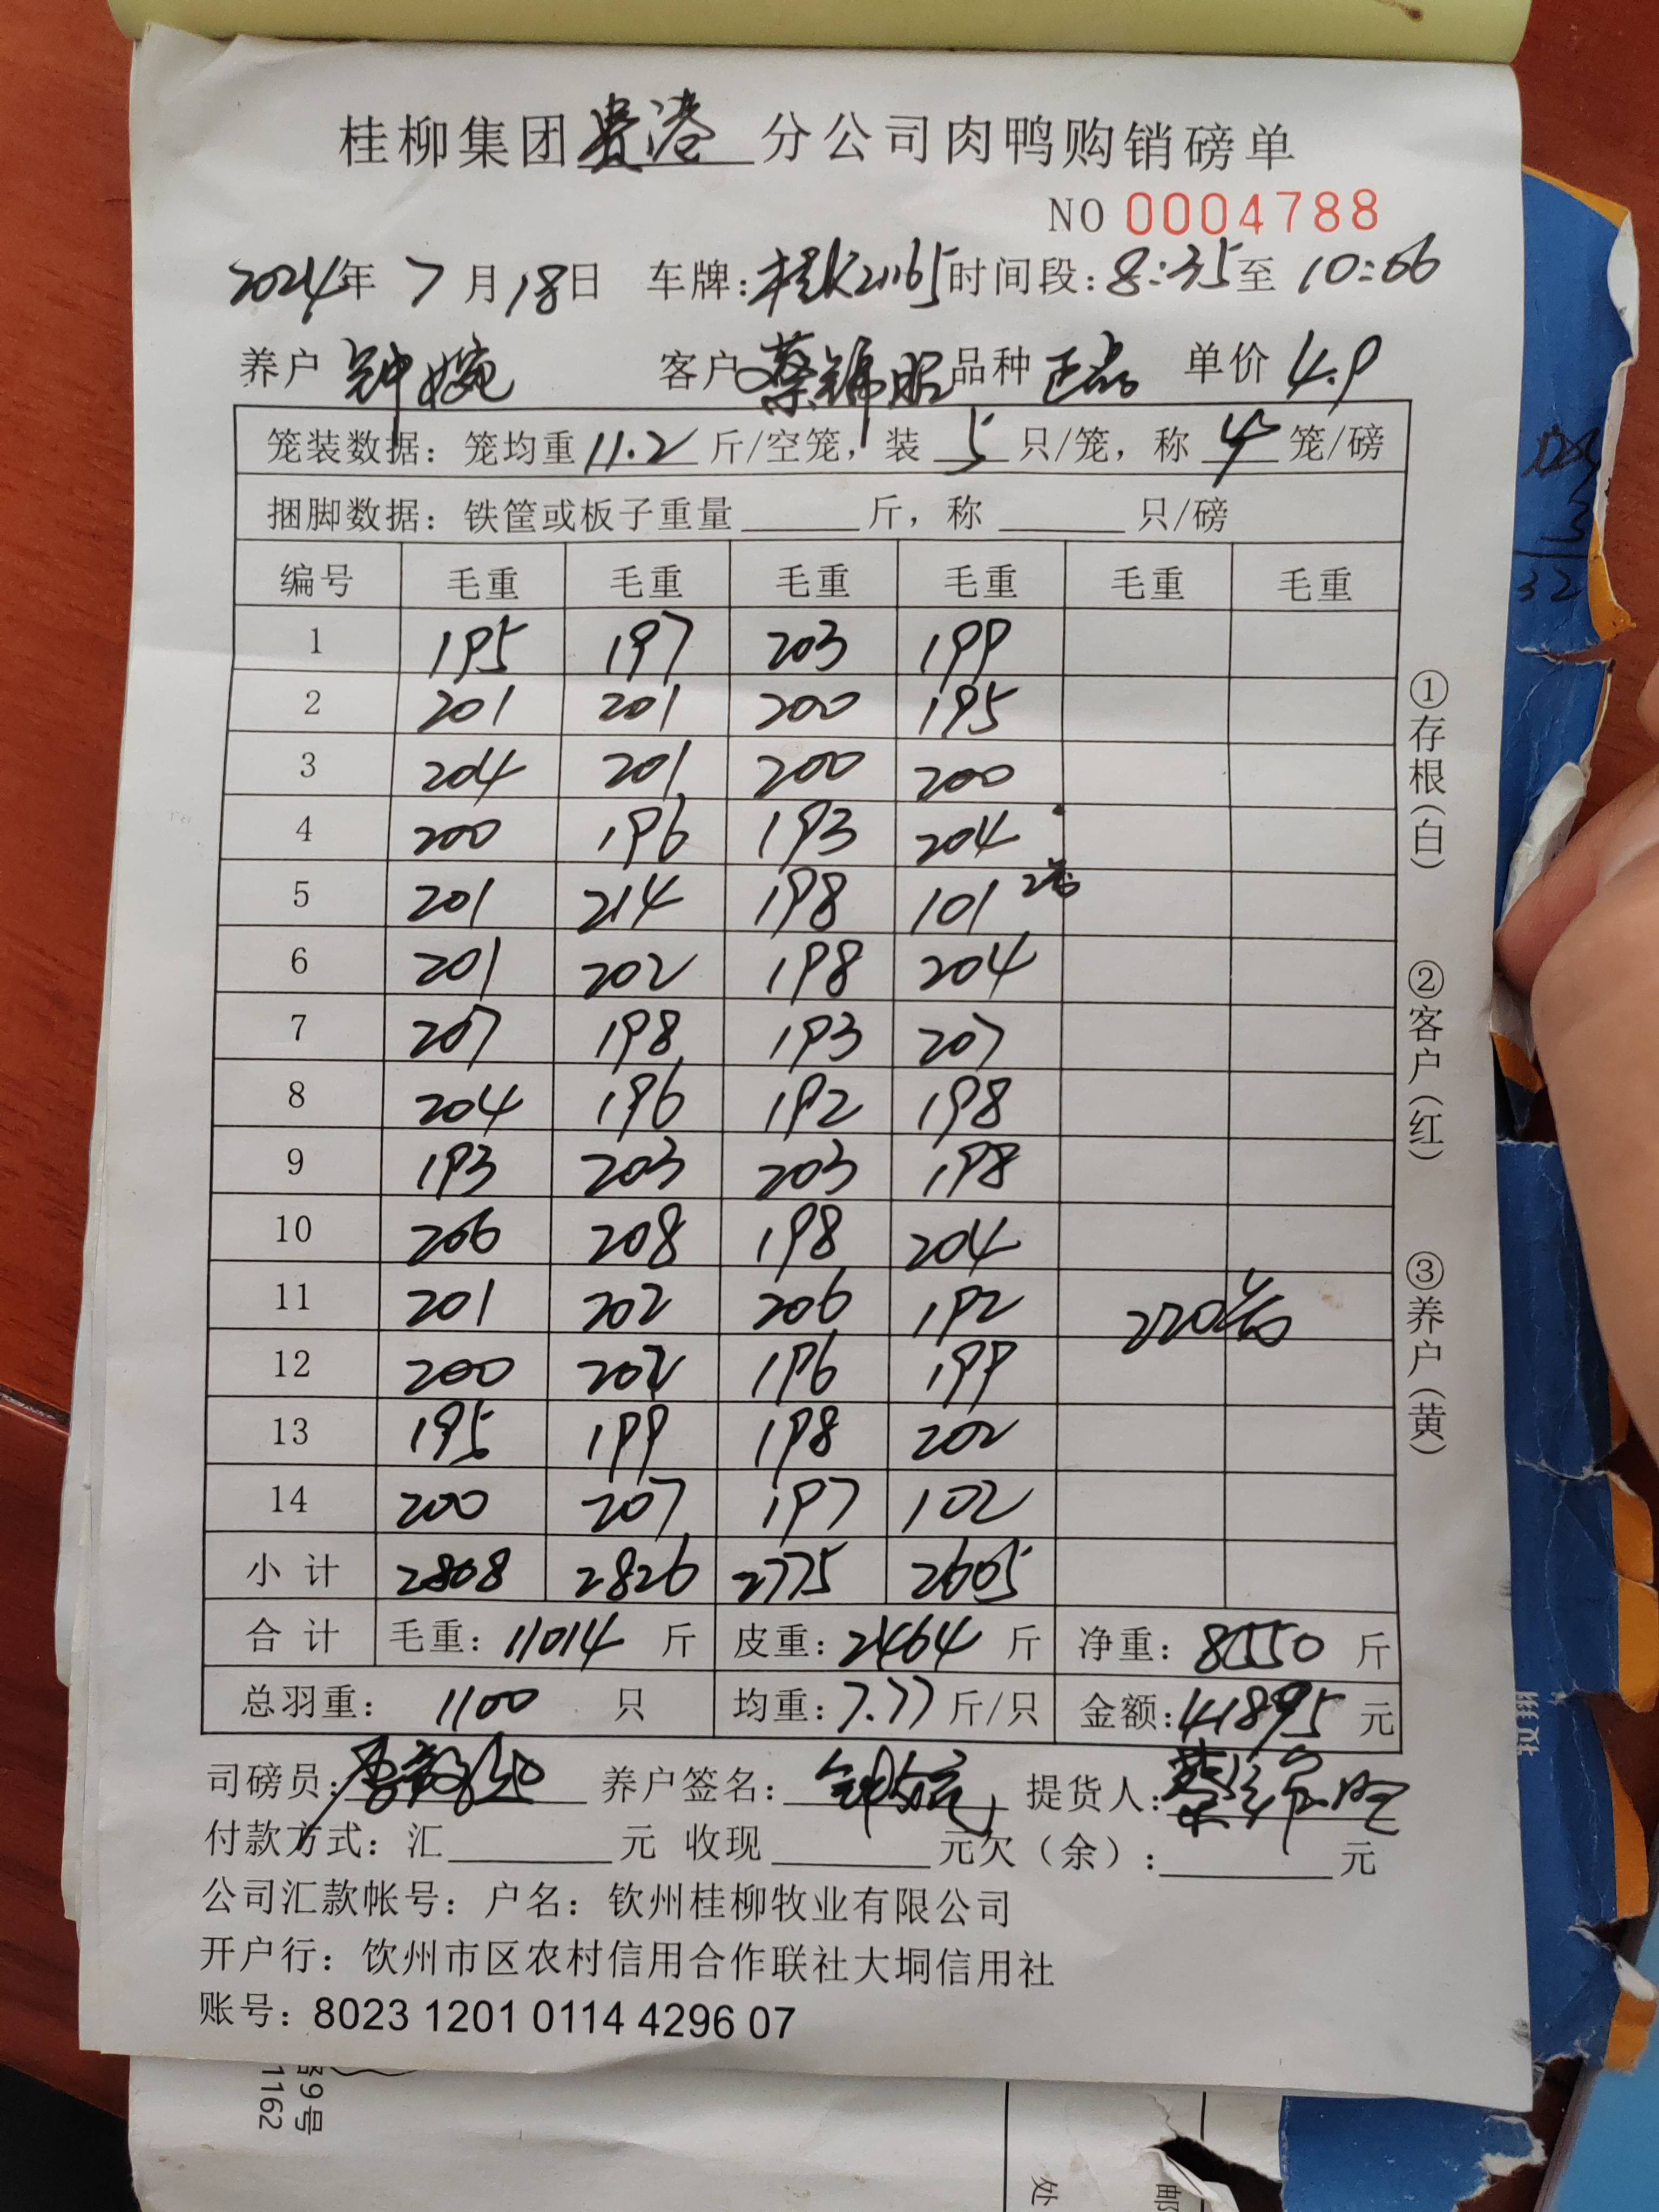 桂柳集团贵港分公司肉鸭购销磅单
NO 0004788
2024年 7月18日 车牌:桂K21165时间段:8:35至 10:06
养户 钟婉 客户 蔡锦昭 品种 正品 单价 4.9
笼装数据: 笼均重 11.2 斤/空笼, 装 5 只/笼, 称 4 笼/磅
捆脚数据: 铁筐或板子重量 斤, 称 只/磅
编号 毛重 毛重 毛重 毛重 毛重 毛重
1 195 197 203 199
2 201 201 200 195
3 204 201 200 200
4 200 196 193 204
5 201 214 198 101 2笼
6 201 202 198 204
7 207 198 193 207
8 204 196 192 198
9 193 203 203 198
10 206 208 198 204
11 201 202 206 192 220笼
12 200 202 196 199
13 195 199 198 202
14 200 207 197 102
小计 2808 2826 2775 2605
合计 毛重: 11014 斤 皮重: 2464 斤 净重: 8550 斤
总羽重: 1100 只 均重: 7.77 斤/只 金额: 41895 元
司磅员: 养户签名: 钟婉 提货人: 蔡锦昭
付款方式: 汇 元 收现 元欠(余): 元
公司汇款帐号: 户名: 钦州桂柳牧业有限公司
开户行: 钦州市区农村信用合作联社大垌信用社
账号: 8023 1201 0114 4296 07
①存根(白) ②客户(红) ③养户(黄)
32
9号
1162
处
邮